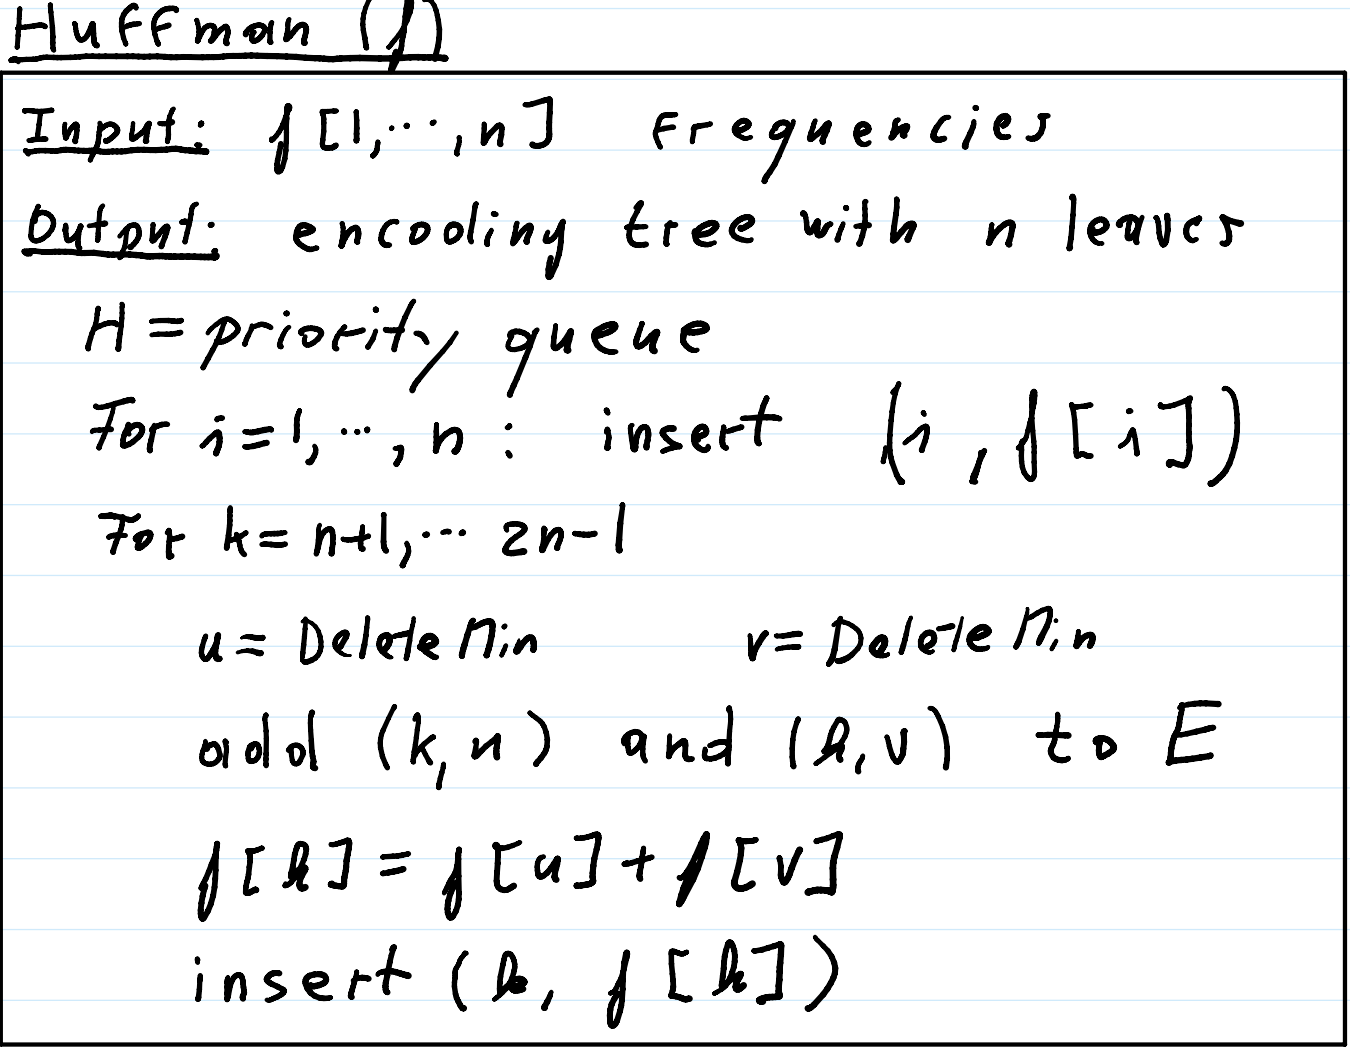 Huffman (f)
Input: f[1,...,n] Frequencies
Output: encoding tree with n leaves
H = priority queue
For i=1,...,n : insert (i, f[i])
For k= n+1,... 2n-1
u= DeleteMin v= DeleteMin
add (k,u) and (k,v) to E
f[k] = f[u] + f[v]
insert (k, f[k])